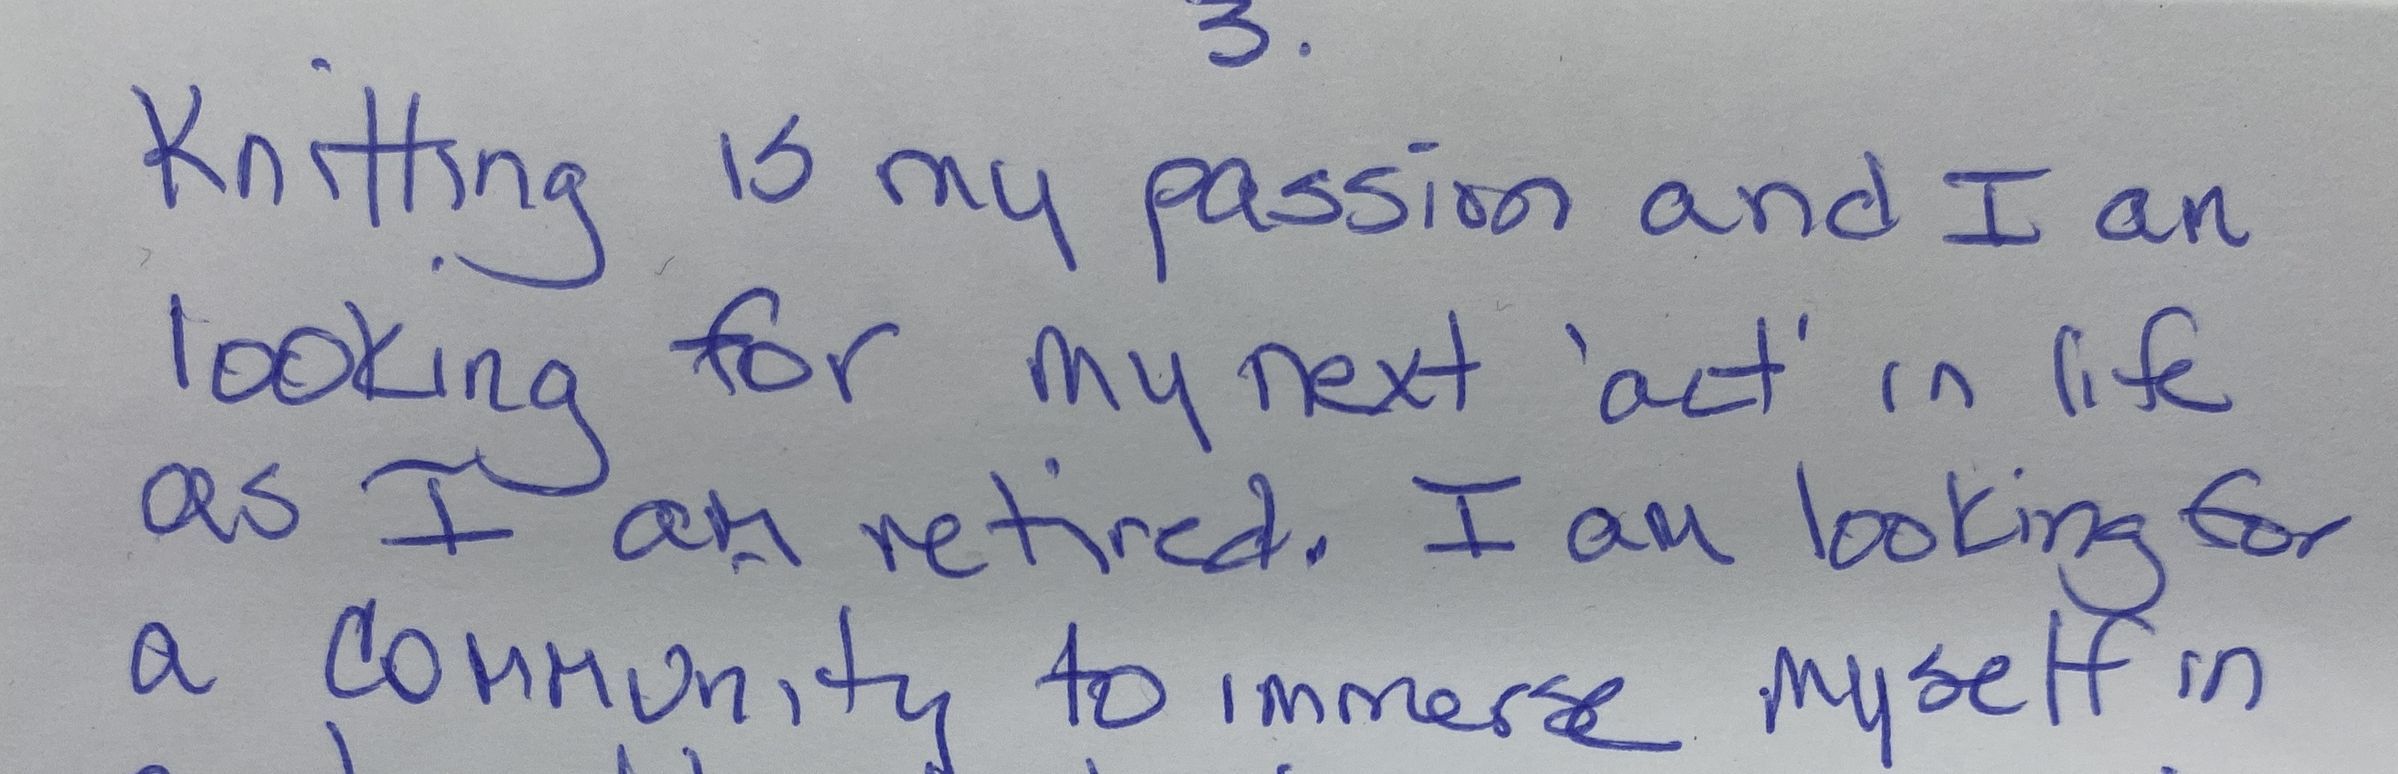 3.
Knitting is my passion and I am
looking for my next 'act' in life
as I am retired. I am looking for
a community to immerse myself in